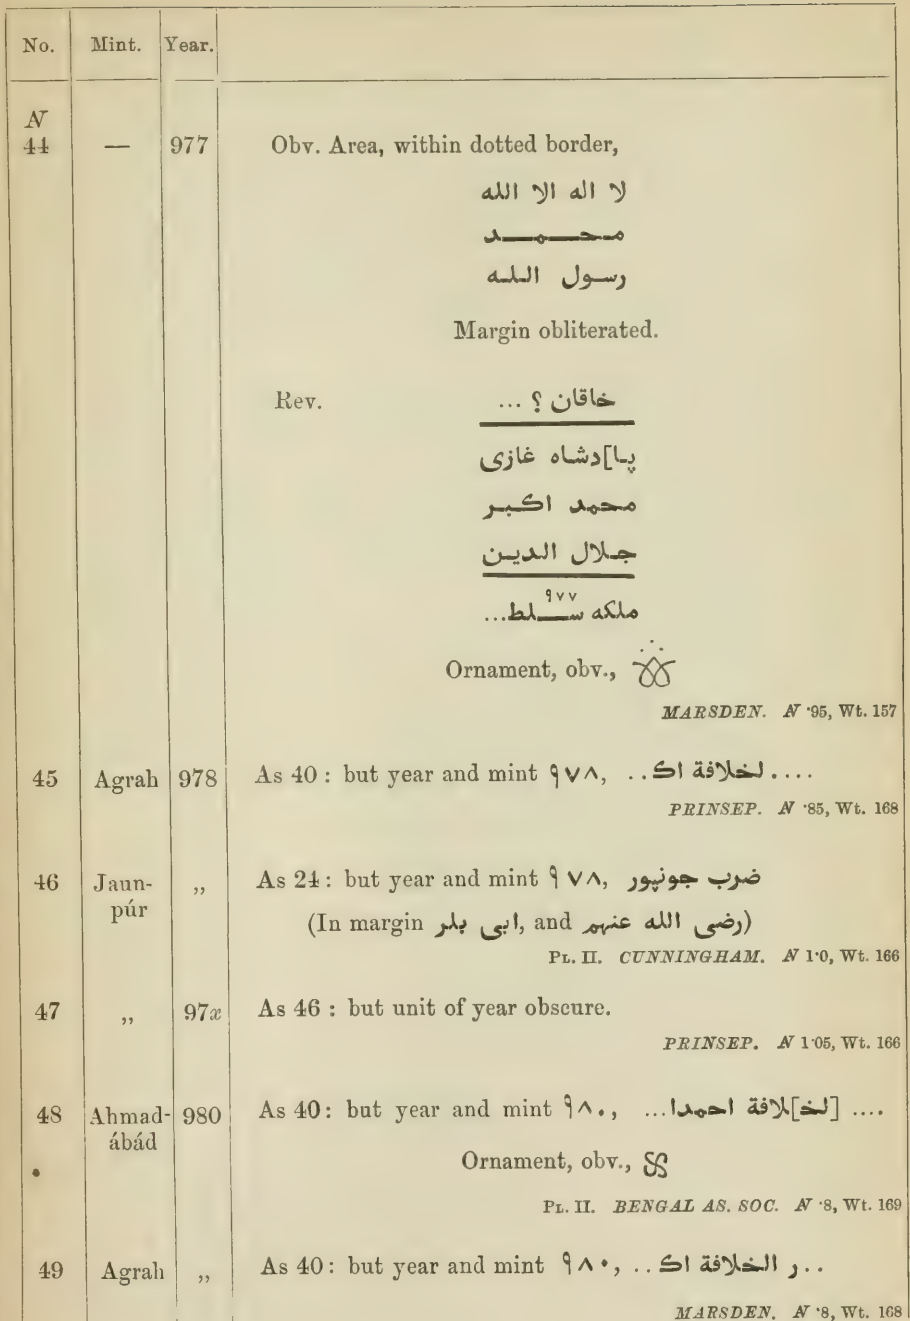 No. Mint. Year.
N
44 — 977 Obv. Area, within dotted border,
لا اله الا الله
محمد
رسول الله
Margin obliterated.
Rev. خاقان ؟ ...
پا]دشاه غازى
محمد اكبر
جلال الدين
٩٧٧
ملكه سلط...
Ornament, obv.,
MARSDEN. N ·95, Wt. 157
45 Agrah 978 As 40 : but year and mint ٩٧٨, ....لخلافة اك..
PRINSEP. N ·85, Wt. 168
46 Jaun- ,, As 24 : but year and mint ٩٧٨, ضرب جونپور
púr (In margin ابى بلر, and رضى الله عنهم)
PL. II. CUNNINGHAM. N 1·0, Wt. 166
47 ,, 97x As 46 : but unit of year obscure.
PRINSEP. N 1·05, Wt. 166
48 Ahmad- 980 As 40 : but year and mint ٩٨٠, .... [لخ]لافة احمدا...
ábád
Ornament, obv.,
PL. II. BENGAL AS. SOC. N ·8, Wt. 169
49 Agrah ,, As 40 : but year and mint ٩٨٠, ..ر الخلافة اك..
MARSDEN. N ·8, Wt. 168